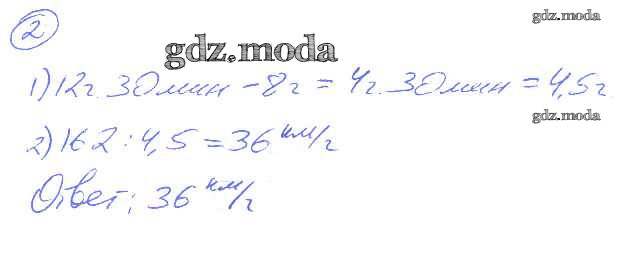 2
gdz.moda
gdz.moda
1) 12г. 30мин - 8г = 4г. 30мин = 4,5г.
gdz.moda
2) 162 : 4,5 = 36 км/г
Ответ: 36 км/г